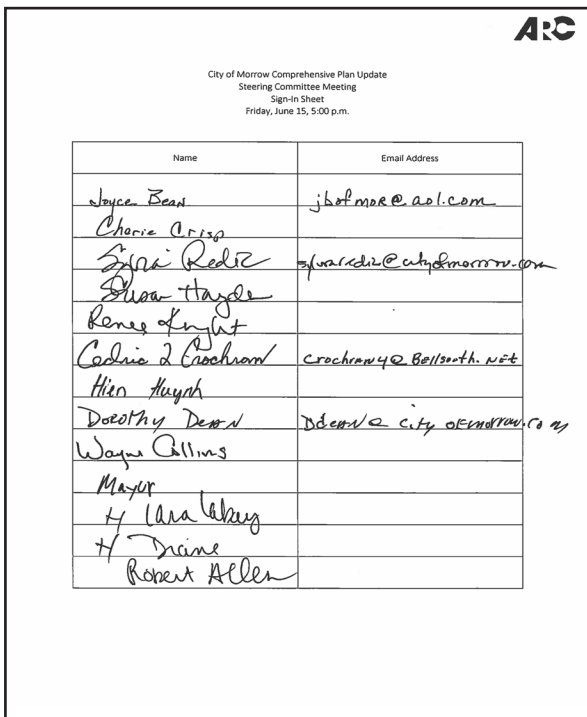 ARC
City of Morrow Comprehensive Plan Update
Steering Committee Meeting
Sign-In Sheet
Friday, June 15, 5:00 p.m.
Name Email Address
Joyce Bean jbofmore@aol.com
Cherie Crisp
Rediz @cityofmorrow.com
Susan Hayde
Renee Knight
Cedric L Crochram Crochran4@Bellsouth.net
Hien Huynh
Dorothy Dean Ddean@cityofmorrow.com
Wayne Collins
Mayor
H Lara
H Diane
Robert Allen